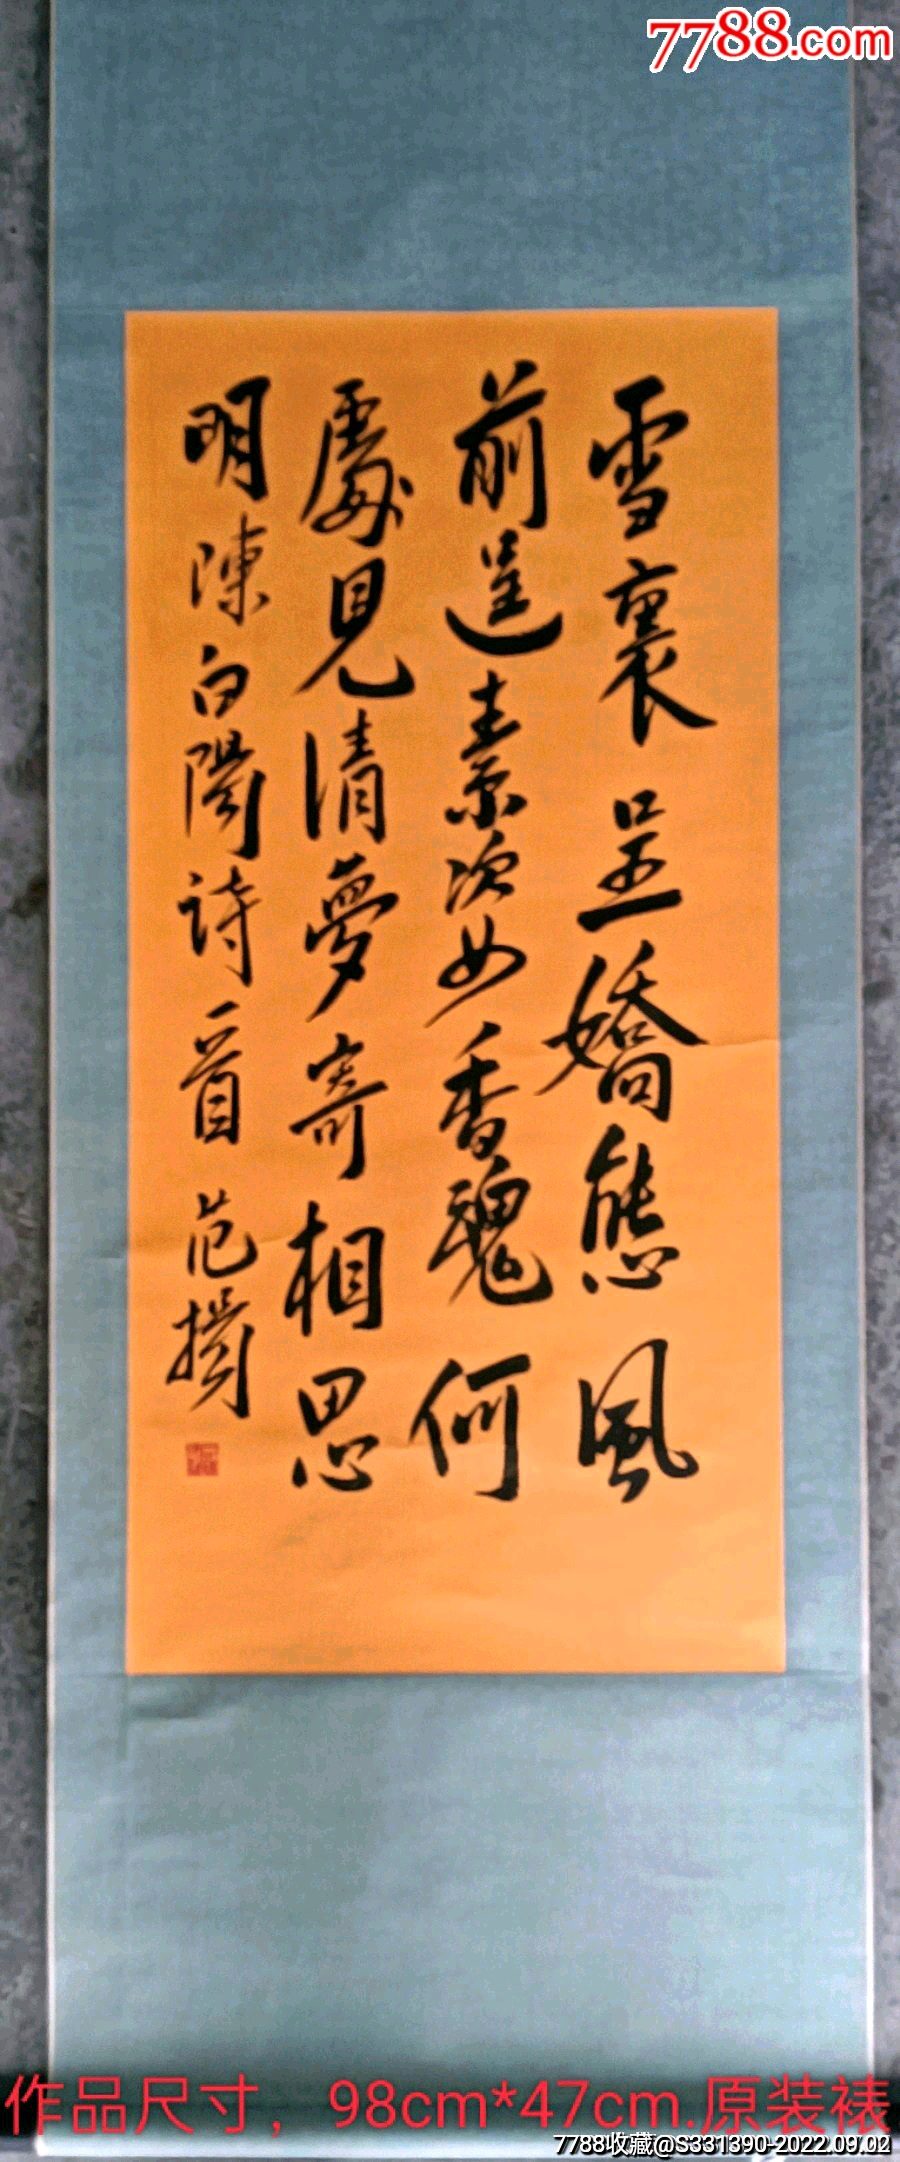 7788.com
雪裏呈嬌態風
前逞素姿香魂何
處見清夢寄相思
明陳白陽詩一首 范撝
作品尺寸，98cm*47cm.原装裱
7788收藏@S331390-2022.09.02